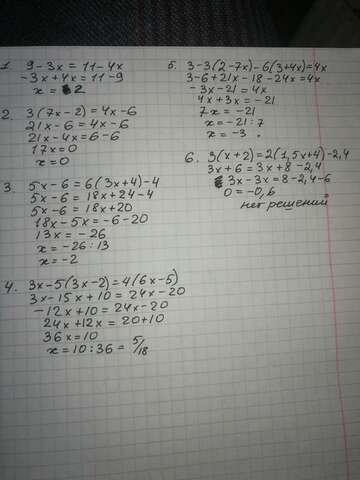 1. 9-3x = 11-4x
-3x+4x = 11-9
x = 2
2. 3(7x-2) = 4x-6
21x-6 = 4x-6
21x-4x = 6-6
17x = 0
x = 0
3. 5x-6 = 6(3x+4)-4
5x-6 = 18x+24-4
5x-6 = 18x+20
18x-5x = -6-20
13x = -26
x = -26:13
x = -2
4. 3x-5(3x-2) = 4(6x-5)
3x-15x+10 = 24x-20
-12x+10 = 24x-20
24x+12x = 20+10
36x = 10
x = 10:36 = 5/18
5. 3-3(2-7x)-6(3+4x) = 4x
3-6+21x-18-24x = 4x
-3x-21 = 4x
4x+3x = -21
7x = -21
x = -21:7
x = -3.
6. 3(x+2) = 2(1,5x+4)-2,4
3x+6 = 3x+8-2,4
3x-3x = 8-2,4-6
0 = -0,6
нет решений